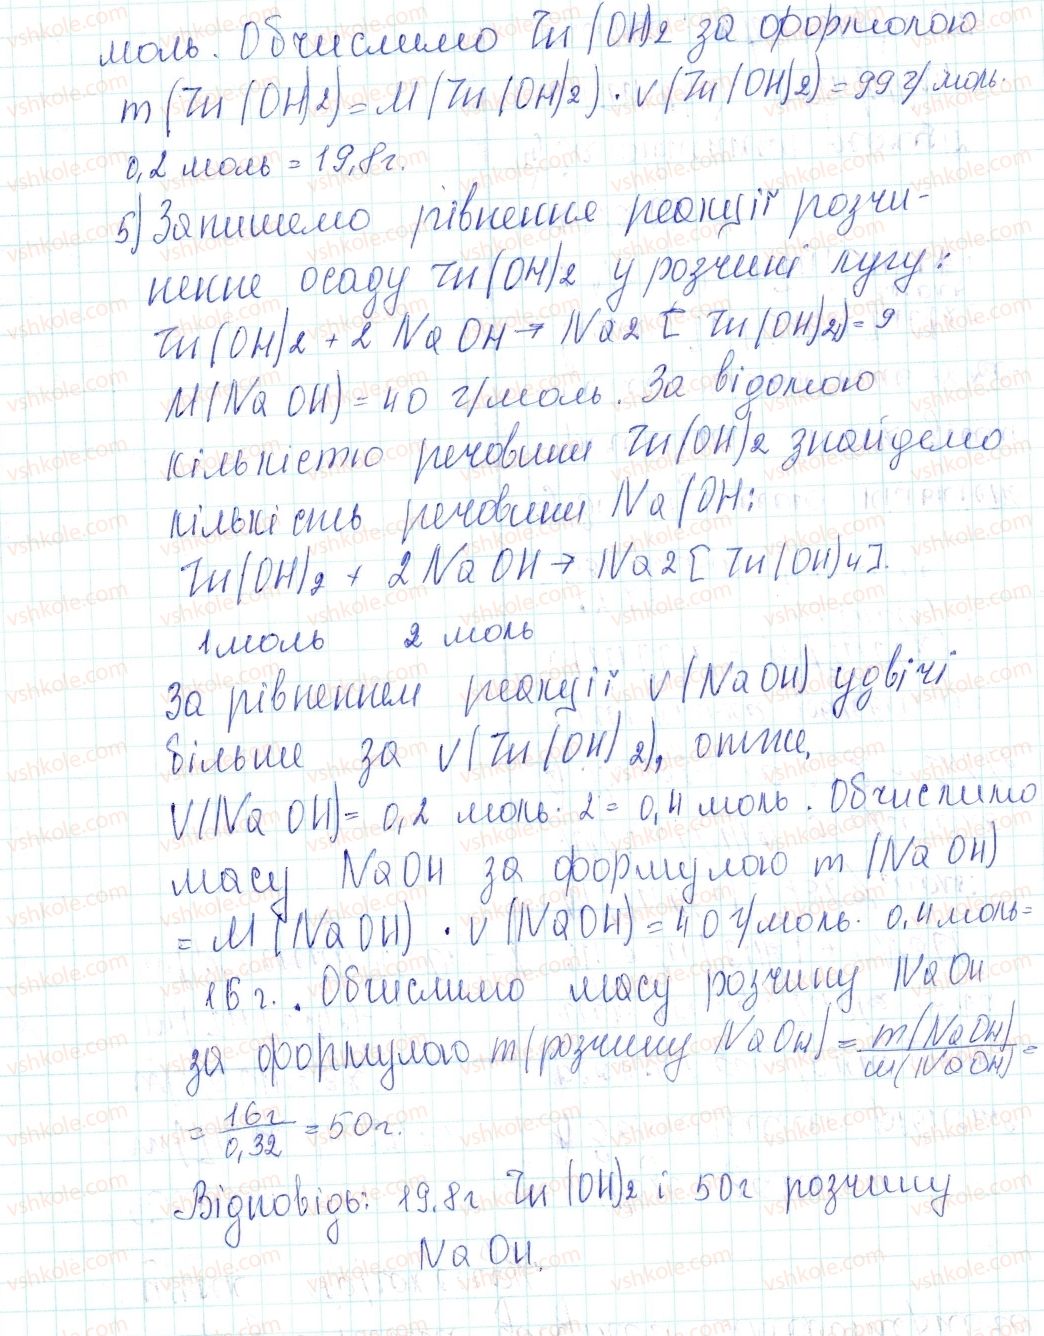 моль. Обчислимо Zn(OH)2 за формолою
m(Zn(OH)2) = M(Zn(OH)2) · ν(Zn(OH)2) = 99 г/моль ·
0,2 моль = 19,8г.
5) Запишемо рівнення реакції розчи-
нення осаду Zn(OH)2 у розчині лугу:
Zn(OH)2 + 2 NaOH → Na2[Zn(OH)2) = 9
M(NaOH) = 40 г/моль. За відомою
кількістю речовини Zn(OH)2 знайдемо
кількість речовини Na(OH:
Zn(OH)2 + 2NaOH → Na2[Zn(OH)4].
1моль 2 моль
За рівнянням реакції ν(NaOH) удвічі
більше за ν(Zn(OH)2), отже,
V(NaOH) = 0,2 моль · 2 = 0,4 моль. Обчислимо
масу NaOH за формулою m(NaOH)
= M(NaOH) · ν(NaOH) = 40 г/моль · 0,4 моль =
16 г. Обчислимо масу розчину NaOH
за формулою m(розчину NaOH) = m(NaOH)/ω(NaOH) =
= 16г/0,32 = 50г.
Відповідь: 19,8г Zn(OH)2 і 50г розчину
NaOH.